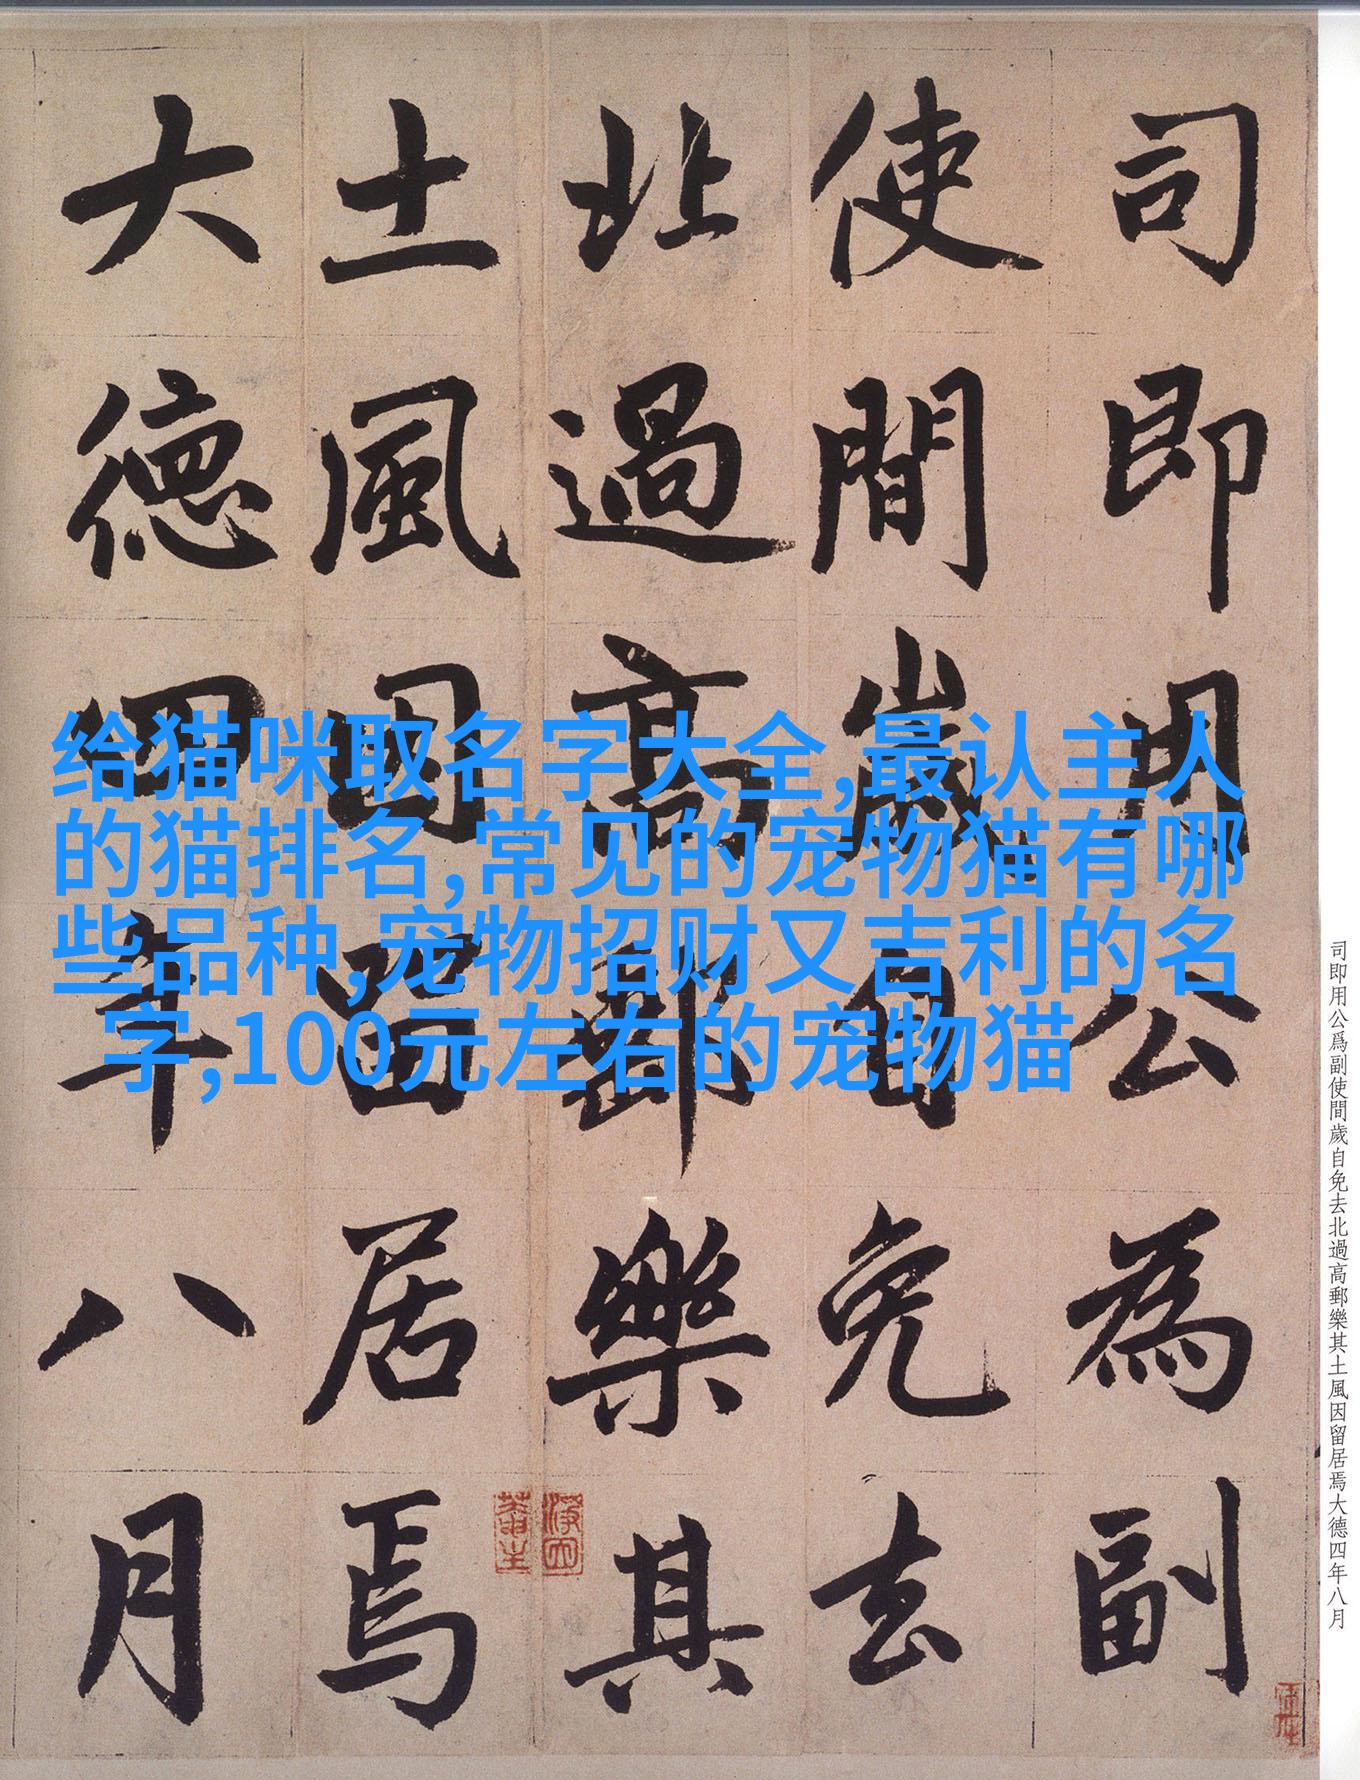 司即用公為副
使間歲自免去
北過高郵樂其
土風因留居焉
大德四年八月
给猫咪取名字大全,最认主人
的猫排名,常见的宠物猫有哪
些品种,宠物招财又吉利的名
字,100元左右的宠物猫
司即用公爲副使間歲自免去北過高郵樂其土風因留居焉大德四年八月